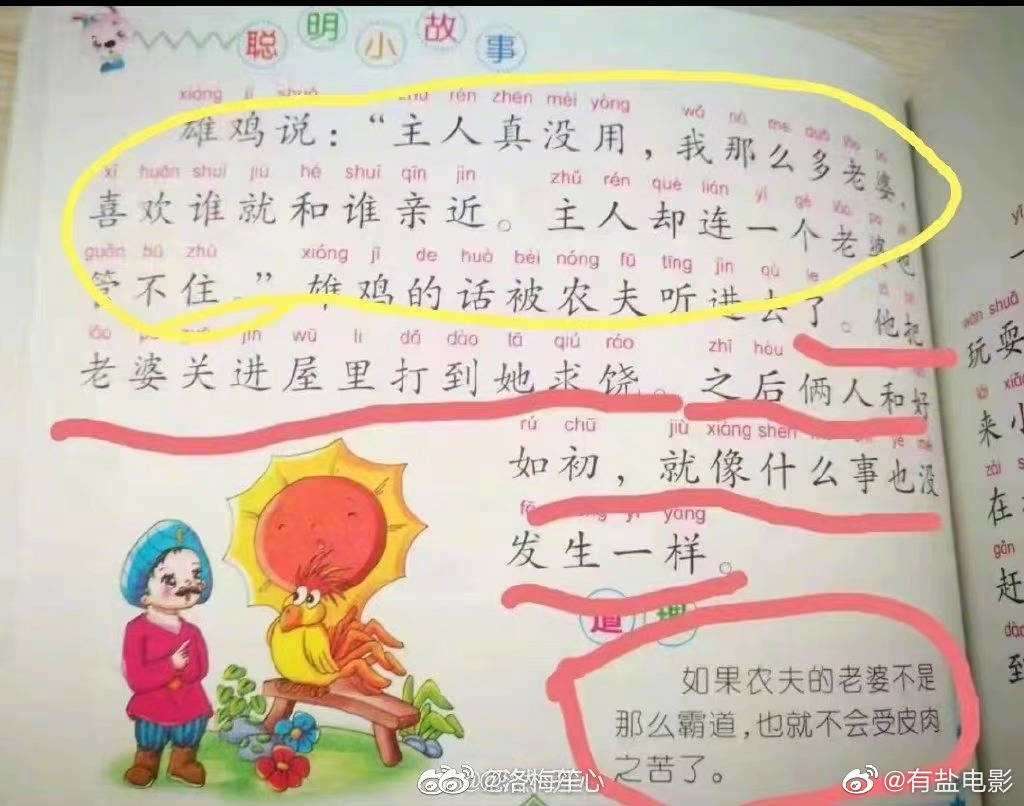 聪明小故事
xióng jī shuō zhǔ rén zhēn méi yòng wǒ nà me duō lǎo
雄鸡说：“主人真没用，我那么多老婆，
xǐ huān shuí jiù hé shuí qīn jìn zhǔ rén què lián yí gè lǎo pó
喜欢谁就和谁亲近。主人却连一个老婆也
guǎn bú zhù xióng jī de huà bèi nóng fū tīng jìn qù le
管不住。”雄鸡的话被农夫听进去了。他把
lǎo jìn wū li dǎ dào tā qiú ráo zhī hòu
老婆关进屋里打到她求饶。之后俩人和好
rú chū jiù xiàng shén yě méi
如初，就像什么事也没
yí yàng
发生一样。
道理
如果农夫的老婆不是
那么霸道，也就不会受皮肉
之苦了。
wán shuǎ
玩耍
来小
zài
在
gǎn
赶
到
@洛梅笙心
@有盐电影